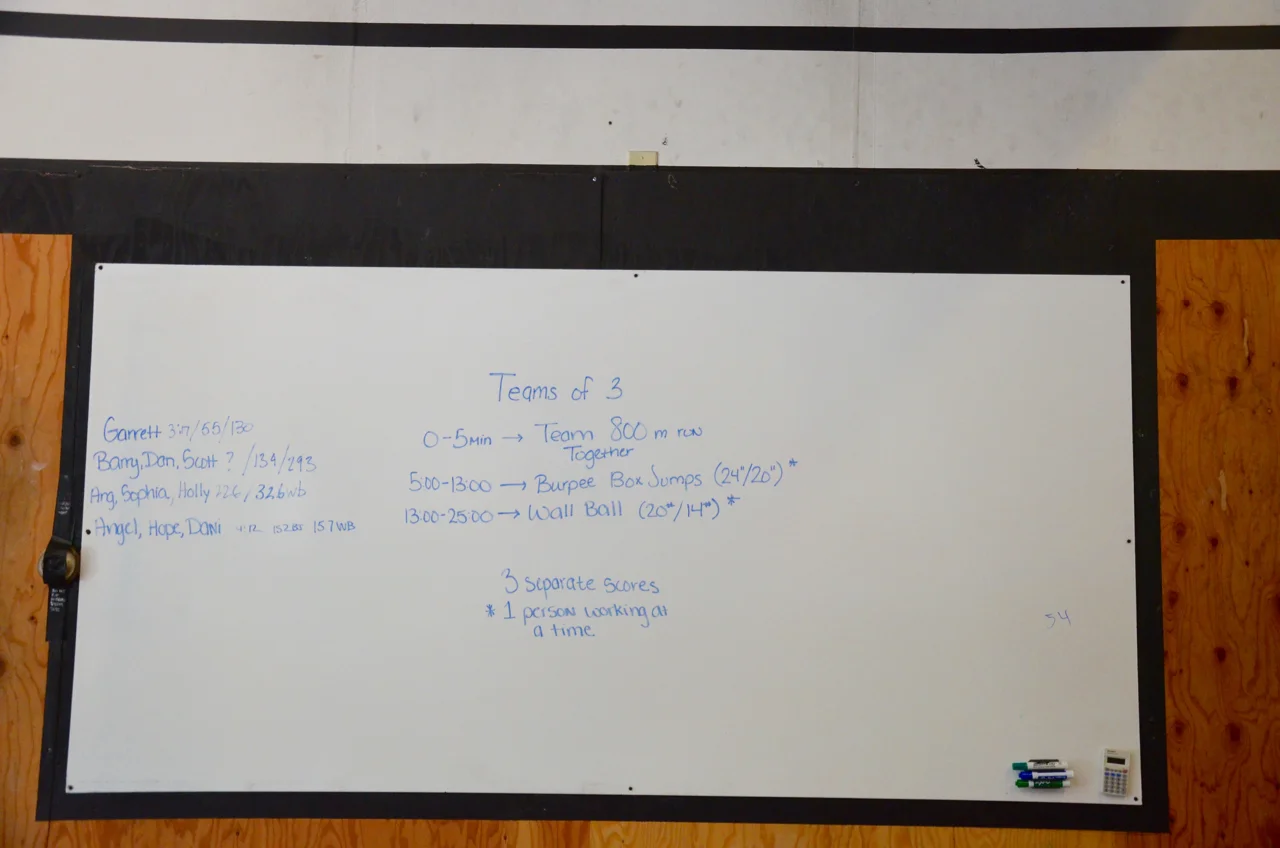 Teams of 3
0-5Min → Team 800 m run
Together
5:00-13:00 → Burpee Box Jumps (24"/20") *
13:00-25:00 → Wall Ball (20#/14#) *
3 separate scores
* 1 person working at
a time.
Garrett 3:17/55/130
Barry, Dan, Scott ? /134/293
Ang, Sophia, Holly 226/326wb
Angel, Hope, Dani 4:12 157WB
54